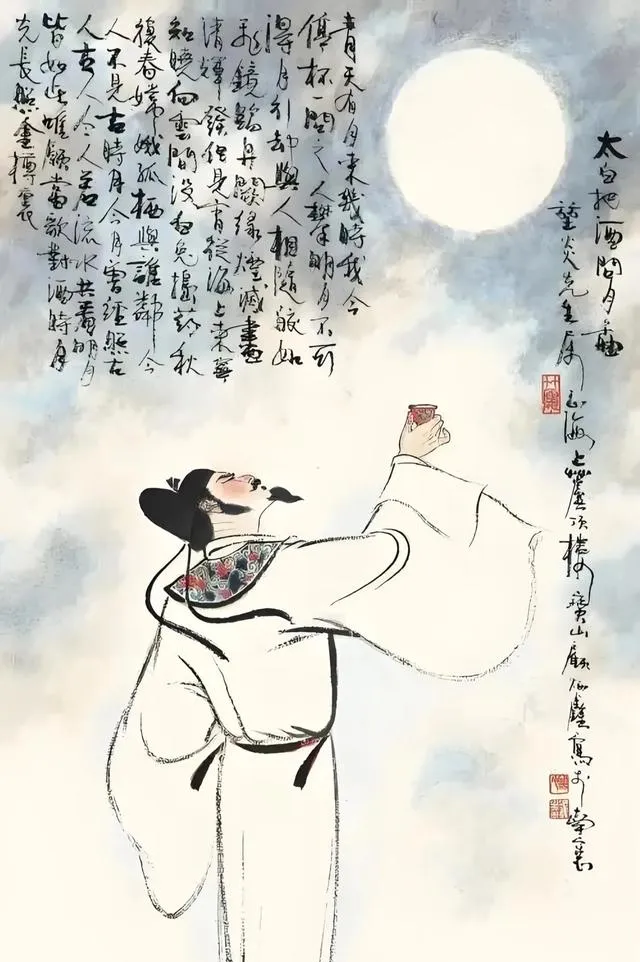 太白把酒問月圖
先生属正海上頂樓寶山顧炳鑫寫於南窗
青天有月來幾時我今
停杯一問之人攀明月不可
得月行却與人相隨皎如
飛鏡臨丹闕緑煙滅盡
清輝發但見宵從海上來寧
知曉向雲間没白兔搗药秋
復春嫦娥孤栖與誰鄰今
人不見古時月今月曾經照古
人古人今人若流水共看明月
皆如此唯願當歌對酒時月
光長照金樽裏